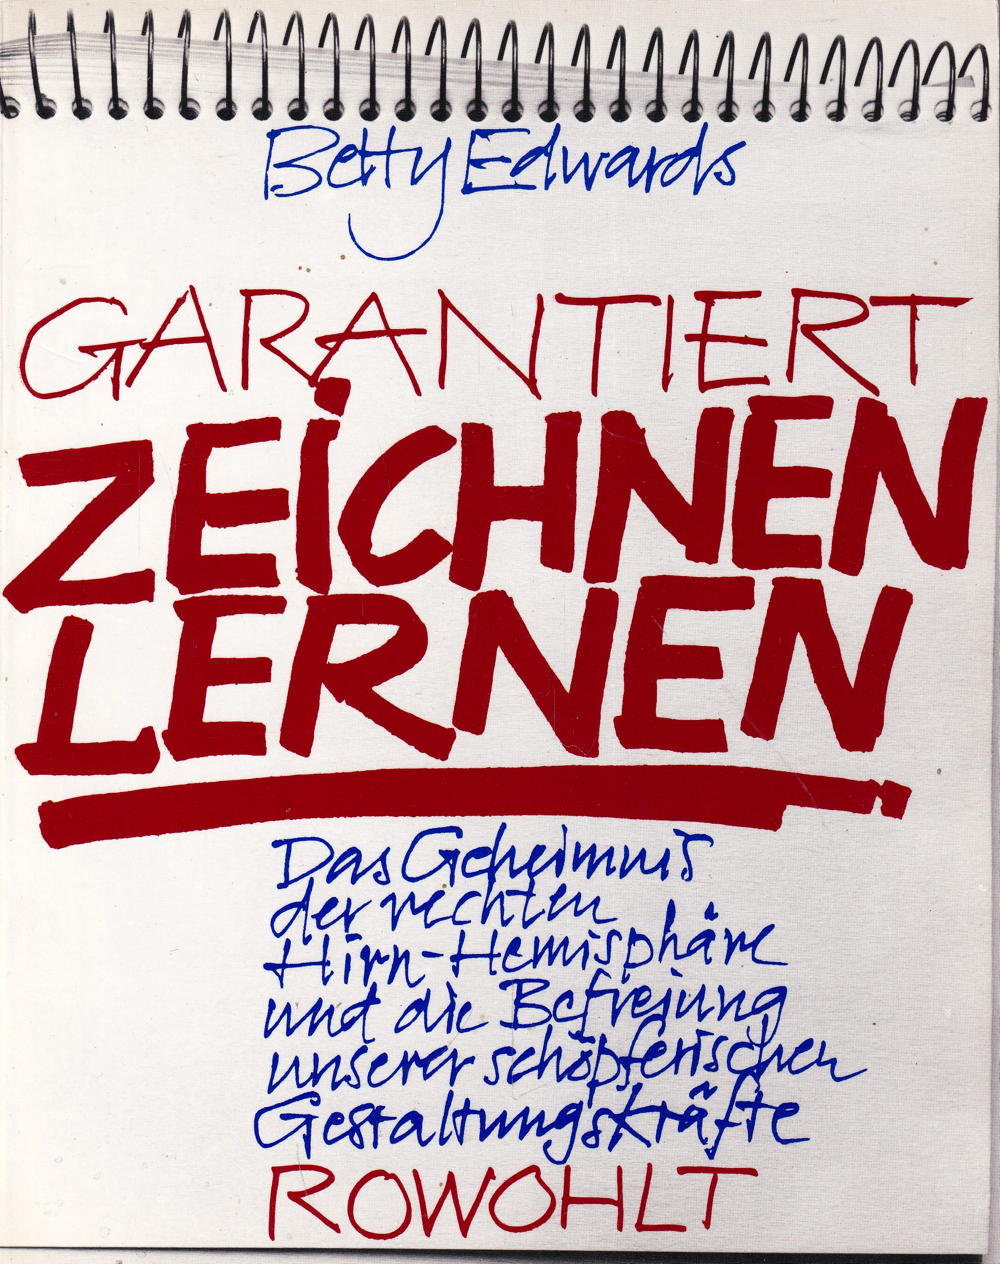 Betty Edwards
GARANTIERT
ZEiCHNEN
LERNEN
Das Geheimnis
der rechten
Hirn-Hemisphäre
und die Befreiung
unserer schöpferischen
Gestaltungskräfte
ROWOHLT